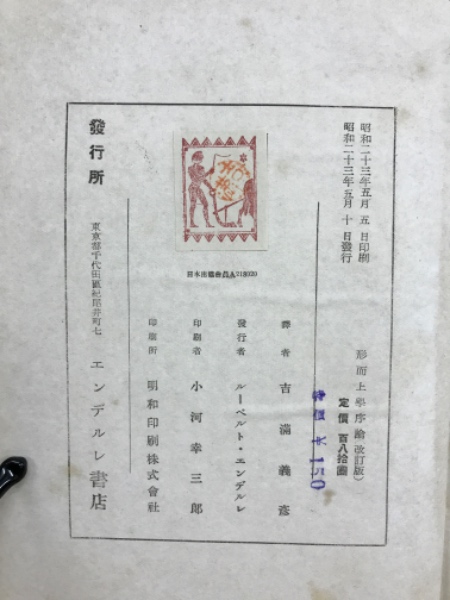 昭和二十三年五月 五 日印刷
昭和二十三年五月 十 日發行
形而上學序論(改訂版)
定價 百八拾圓
特價 ¥ 150
譯者 吉滿義彥
發行者 ルーペルト・エンデルレ
印刷者 小河幸三郎
印刷所 明和印刷株式會社
日本出版協會員A213020
發行所 東京都千代田區紀尾井町七 エンデルレ書店